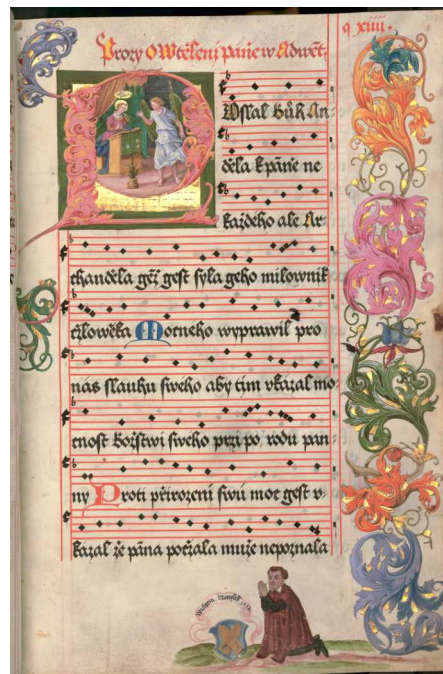 q xiiii.
Prozy o Wtěleni panie w Adwět.
Wslal Bůh An
děla k panie ne
každeho ale Ar
chanděla gěž gest syla geho milownik
człowěka Mocneho wyprawil pro
nás služku sweho aby tim vkázal mo
cnost božstwi sweho przi po rodu pan
ny Proti přirozeni swú moc gest v
kázal že pána počzala muže nepoznala